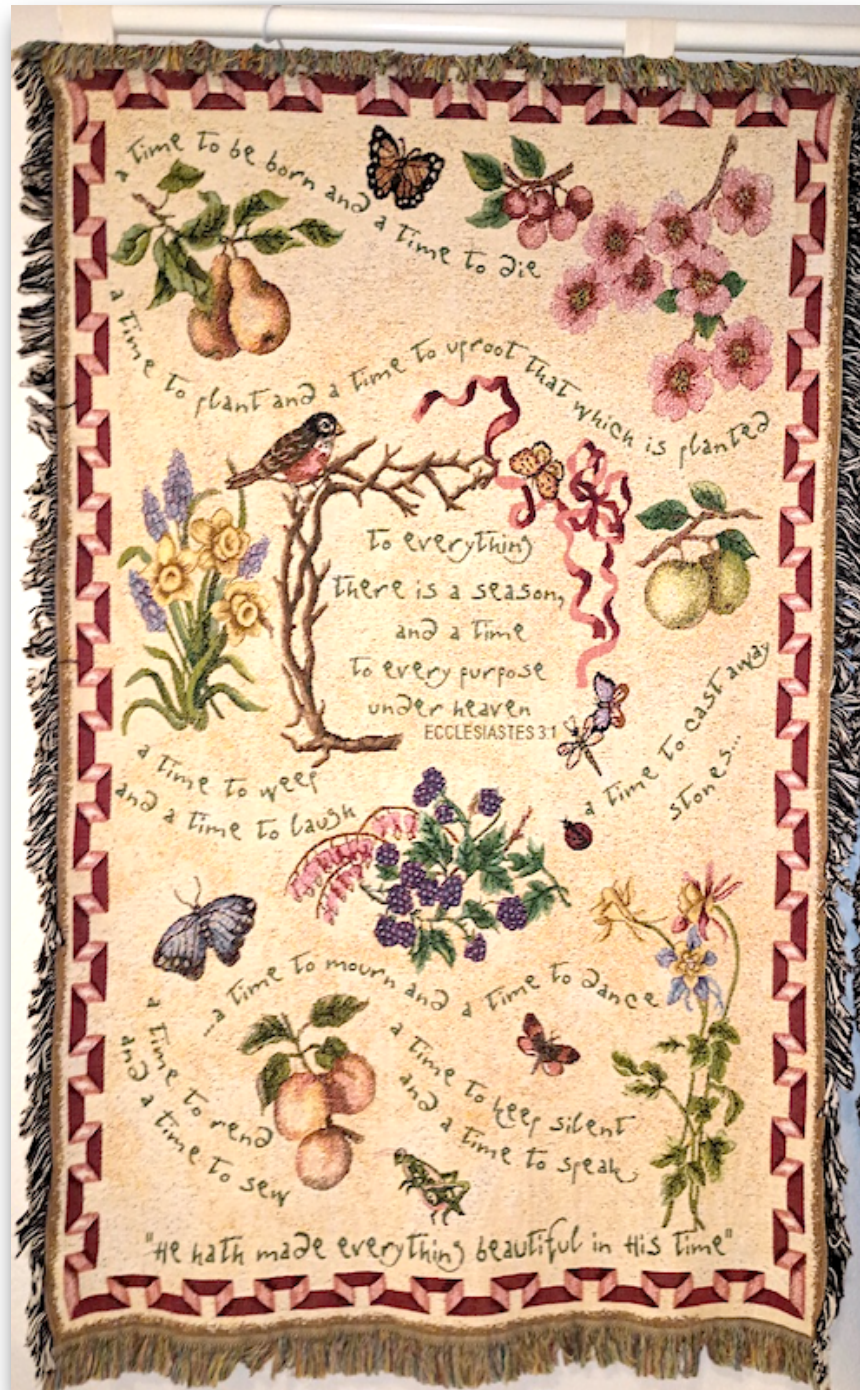 a time to be born and a time to die
a time to plant and a time to uproot that which is planted
to everything
there is a season,
and a time
to every purpose
under heaven
ECCLESIASTES 3:1
a time to cast away
stones...
a time to weep
and a time to laugh
...a time to mourn and a time to dance
a time to rend
and a time to sew
a time to keep silent
and a time to speak
"He hath made everything beautiful in His time"